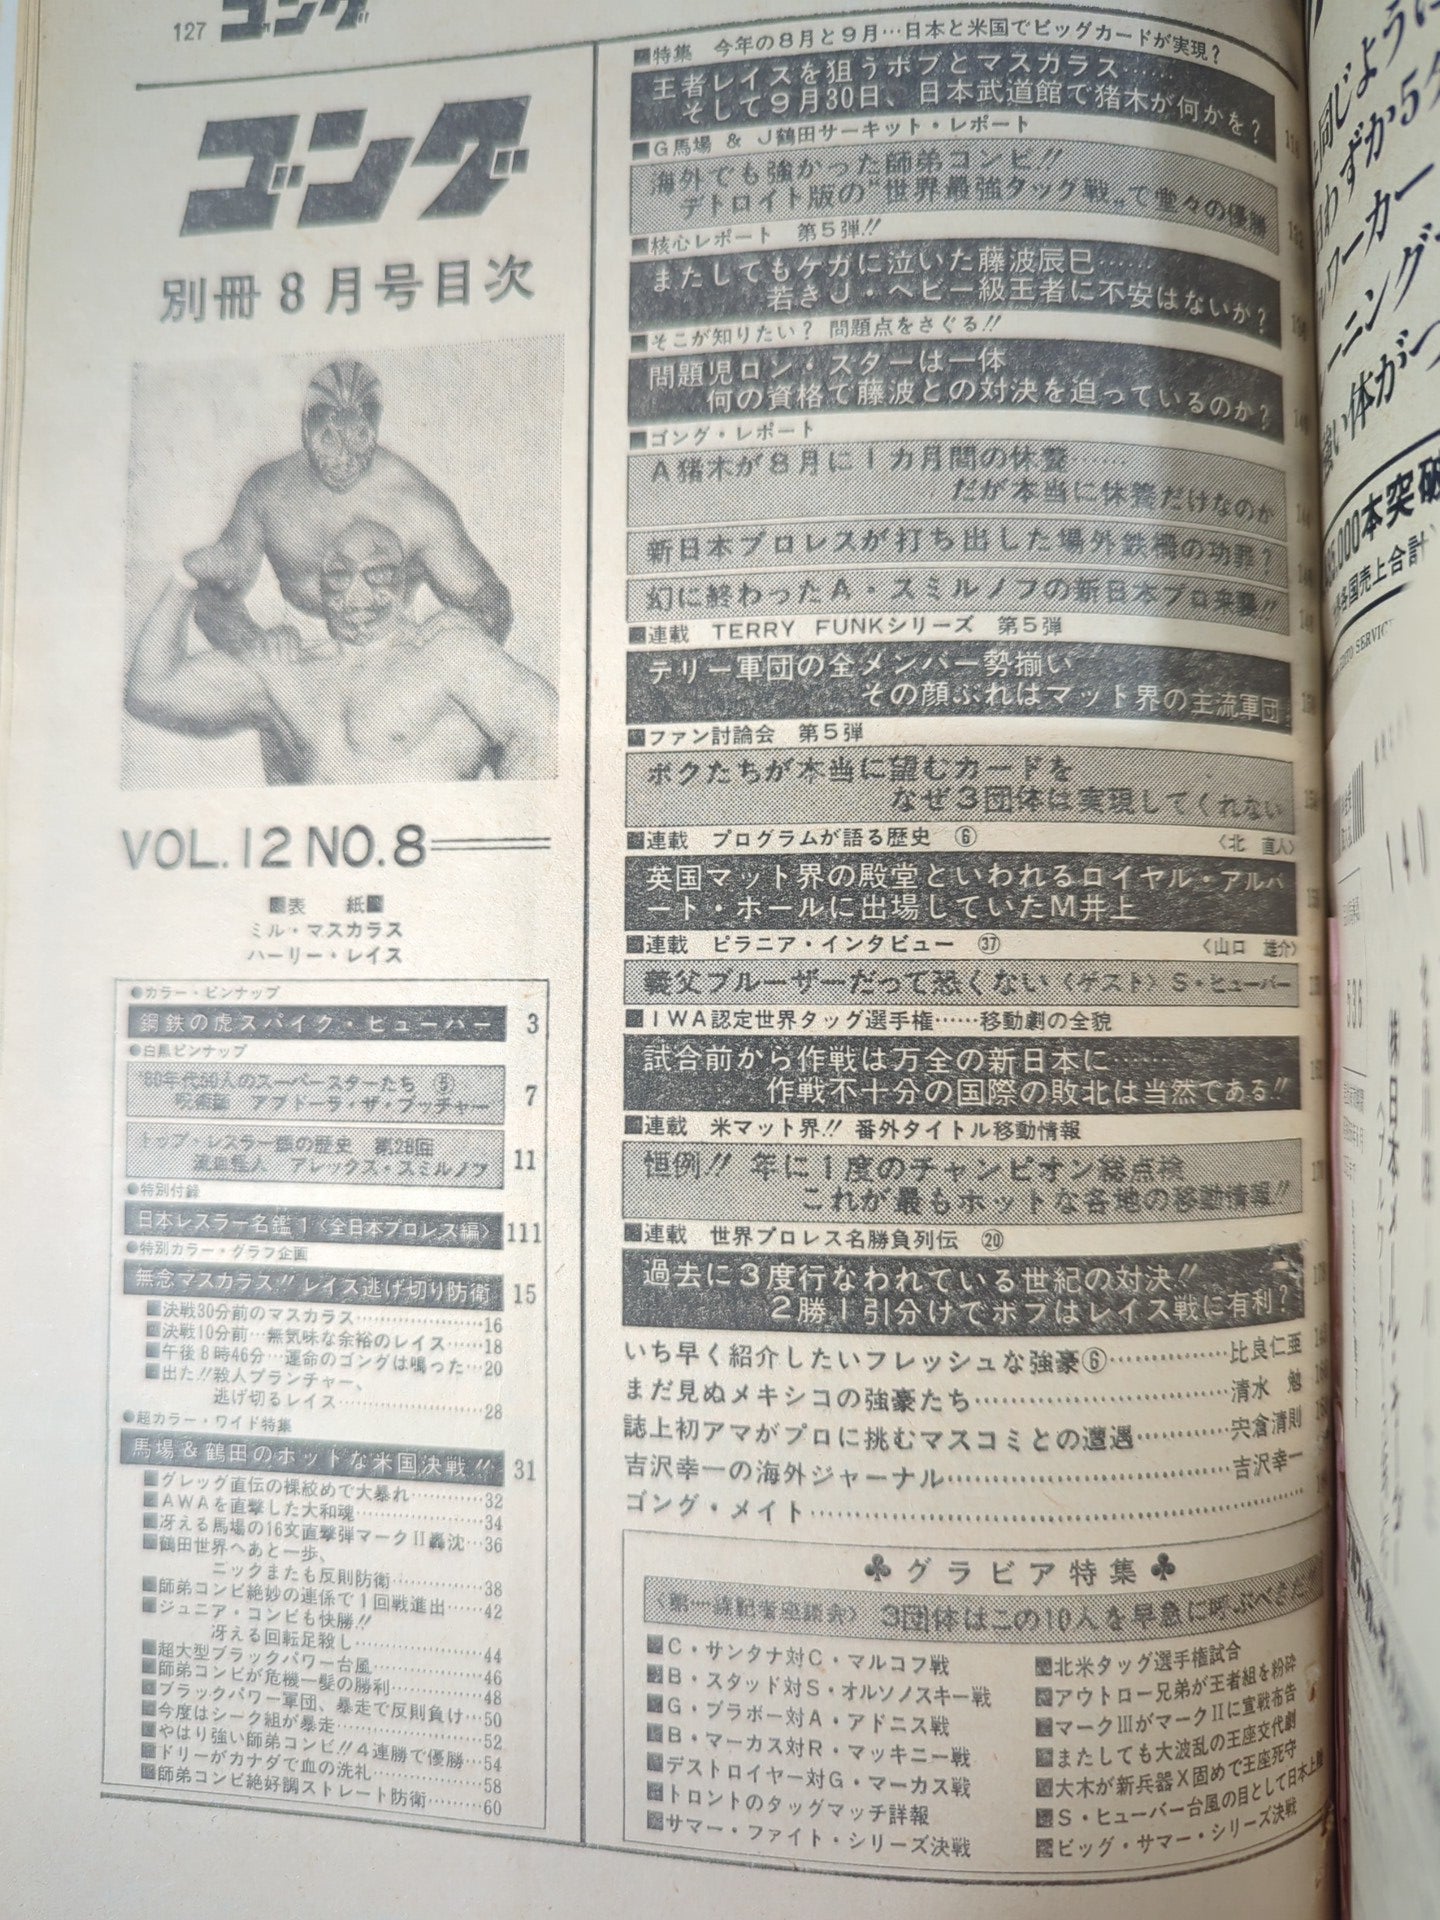 127 ゴング
ゴング
別冊8月号目次
VOL.12 NO.8
■表 紙■
ミル・マスカラス
ハーリー・レイス
●カラー・ピンナップ
鋼鉄の虎スパイク・ヒューバー 3
●白黒ピンナップ
'80年代50人のスーパースターたち ⑤
呪術師 アブドーラ・ザ・ブッチャー 7
トップ・レスラー 歴史 第28回
アレックス・スミルノフ 11
●特別付録
日本レスラー名鑑1〈全日本プロレス編〉 111
●特別カラー・グラフ企画
無念マスカラス!! レイス逃げ切り防衛 15
■決戦30分前のマスカラス……………16
■決戦10分前…無気味な余裕のレイス……18
■午後8時46分…運命のゴングは鳴った…20
■出た!!殺人プランチャー、
逃げ切るレイス……………28
●超カラー・ワイド特集
馬場&鶴田のホットな米国決戦!! 31
■グレッグ直伝の裸絞めで大暴れ…………32
■AWAを直撃した大和魂……………34
■冴える馬場の16文直撃弾マークⅡ轟沈…36
■鶴田世界へあと一歩、
ニックまたも反則防衛……………38
■師弟コンビ絶妙の連係で1回戦進出……42
■ジュニア・コンビも快勝!!
冴える回転足殺し……………44
■超大型ブラックパワー台風……………46
■師弟コンビが危機一髪の勝利…………48
■ブラックパワー軍団、暴走で反則負け…50
■今度はシーク組が暴走……………52
■やはり強い師弟コンビ!!4連勝で優勝…54
■ドリーがカナダで血の洗礼……………58
■師弟コンビ絶好調ストレート防衛………60
■特集 今年の8月と9月…日本と米国でビッグカードが実現?
王者レイスを狙うボブとマスカラス……
そして9月30日、日本武道館で猪木が何かを?
■G馬場 & J鶴田サーキット・レポート
海外でも強かった師弟コンビ!!
デトロイト版の"世界最強タッグ戦"で堂々の優勝
■核心レポート 第5弾!!
またしてもケガに泣いた藤波辰巳……
若きJ・ヘビー級王者に不安はないか?
■そこが知りたい? 問題点をさぐる!!
問題児ロン・スターは一体
何の資格で藤波との対決を迫っているのか?
■ゴング・レポート
A猪木が8月に1カ月間の休養……
だが本当に休養だけなのか
新日本プロレスが打ち出した場外鉄柵の功罪?
幻に終わったA・スミルノフの新日本プロ来襲!!
■連載 TERRY FUNKシリーズ 第5弾
テリー軍団の全メンバー勢揃い
その顔ぶれはマット界の主流軍団
■ファン討論会 第5弾
ボクたちが本当に望むカードを
なぜ3団体は実現してくれない
■連載 プログラムが語る歴史 ⑥ 〈北 直人〉
英国マット界の殿堂といわれるロイヤル・アルバ
ート・ホールに出場していたM井上
■連載 ピラニア・インタビュー ㊲ 〈山口 雄介〉
義父ブルーザーだって恐くない〈ゲスト〉S・ヒューバー
■IWA認定世界タッグ選手権……移動劇の全貌
試合前から作戦は万全の新日本に……
作戦不十分の国際の敗北は当然である!!
■連載 米マット界!! 番外タイトル移動情報
恒例!! 年に1度のチャンピオン総点検
これが最もホットな各地の移動情報!!
■連載 世界プロレス名勝負列伝 ⑳
過去に3度行なわれている世紀の対決!!
2勝1引分けでボブはレイス戦に有利?
いち早く紹介したいフレッシュな強豪⑥……………比良仁亜
まだ見ぬメキシコの強豪たち……………清水 勉
誌上初アマがプロに挑むマスコミとの遭遇…………宍倉清則
吉沢幸一の海外ジャーナル……………吉沢幸一
ゴング・メイト……………
♣グラビア特集♣
記者座談会〉 3団体はこの10人を早急に呼ぶべきだ!!
■C・サンタナ対C・マルコフ戦
■B・スタッド対S・オルソノスキー戦
■G・ブラボー対A・アドニス戦
■B・マーカス対R・マッキニー戦
■デストロイヤー対G・マーカス戦
■トロントのタッグマッチ詳報
■サマー・ファイト・シリーズ決戦
■北米タッグ選手権試合
■アウトロー兄弟が王者組を粉砕
■マークⅢがマークⅡに宣戦布告
■またしても大波乱の王座交代劇
■大木が新兵器X固めで王座死守
■S・ヒューバー台風の目として日本上陸
■ビッグ・サマー・シリーズ決戦
同じように
わずか5
ワーカー
ーニング
強い体が
000本突破
各国売上合計